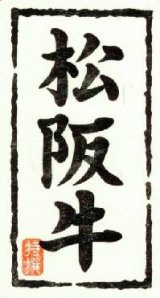 松阪牛
特撰